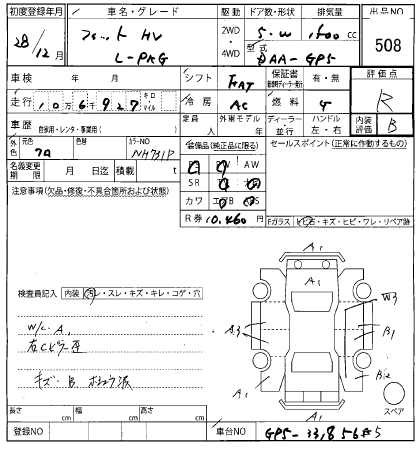 初度登録年月 車名・グレード 駆動 ドア数・形状 排気量 出品NO
28/12月 フィット HV 2WD 5・W 1500 cc 508
L-PKG 4WD 型式 DAA-GP5
車検 年 月 シフト FAT 保証書 有・無 評価点
走行 10万6千927 キロ マイル 冷房 AC 燃料 G R
車歴 自家用・レンタ・事業用( ) 定員 人 外車モデル 年 ディーラー・並行 ハンドル 左・右 内装評価 B
外色 元色 色替 カラーNO NH731P 装備品(純正品に限る) セールスポイント(正常に作動するもの)
名義変更期限 月 日迄 積載 t SR AW
注意事項(欠品・修復・不具合箇所および状態) カワ
R券 10,460円 Fガラス トビ石・キズ・ヒビ・ワレ・リペア跡
A1
A1
W3
検査員記入 内装 汚レ・スレ・キズ・キレ・コゲ・穴
W/C A1
A3 B1
右Cピラー歪
キズ・B
A1 B2
A1 スペア
長さ cm 幅 cm 高さ cm
登録NO 車台NO GP5-